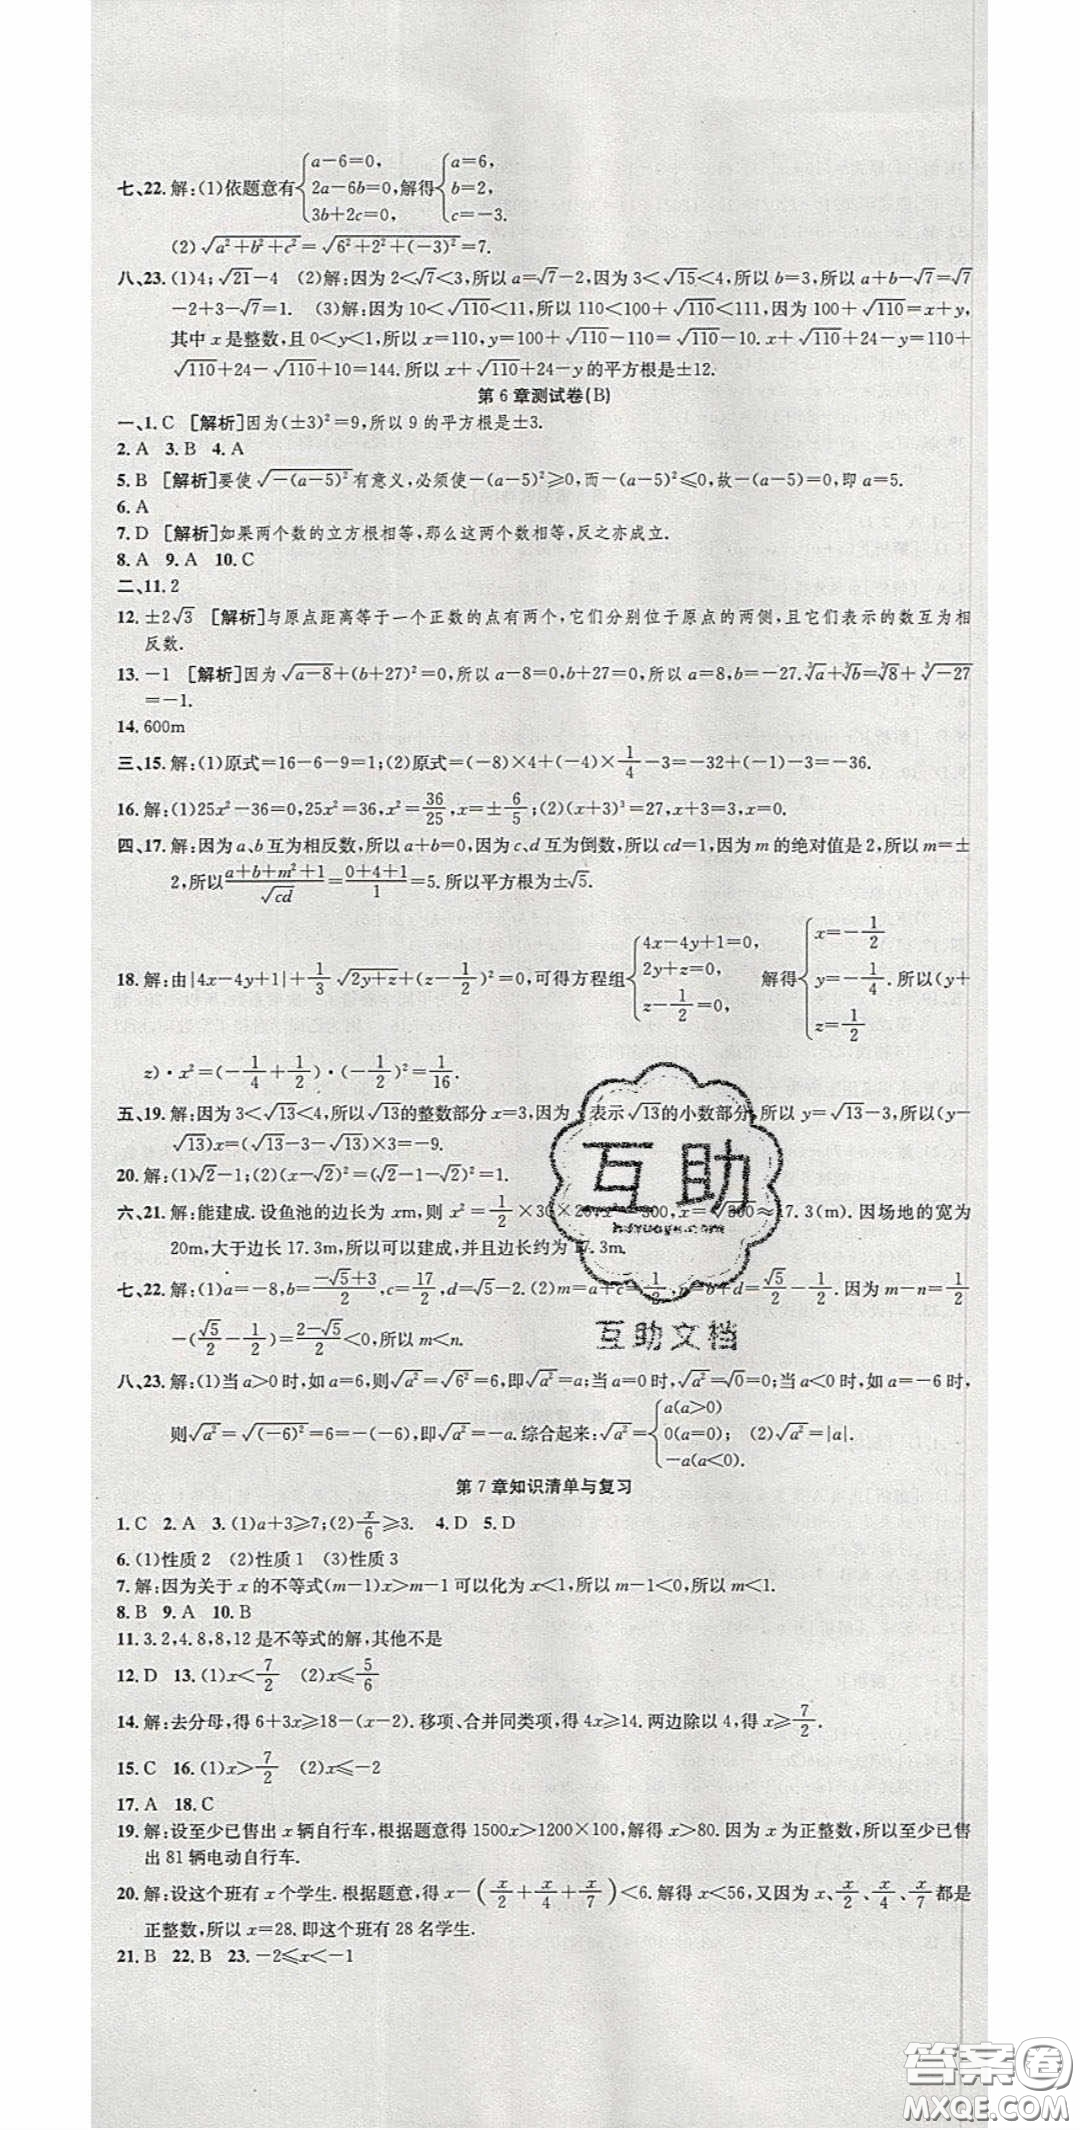 七、22. 解:(1)依题意有{a-6=0, 2a-6b=0, 3b+2c=0,解得{a=6, b=2, c=-3.
(2)√(a²+b²+c²)=√(6²+2²+(-3)²)=7.
八、23. (1)4;√21-4 (2)解:因为2<√7<3,所以a=√7-2,因为3<√15<4,所以b=3,所以a+b-√7=√7
-2+3-√7=1. (3)解:因为10<√110<11,所以110<100+√110<111,因为100+√110=x+y,
其中x是整数,且0<y<1,所以x=110,y=100+√110-110=√110-10.x+√110+24-y=110+
√110+24-√110+10=144.所以x+√110+24-y的平方根是±12.
第6章测试卷(B)
一、1. C [解析]因为(±3)²=9,所以9的平方根是±3.
2. A 3. B 4. A
5. B [解析]要使√(-(a-5)²)有意义,必须使-(a-5)²≥0,而-(a-5)²≤0,故-(a-5)=0,即a=5.
6. A
7. D [解析]如果两个数的立方根相等,那么这两个数相等,反之亦成立.
8. A 9. A 10. C
二、11. 2
12. ±2√3 [解析]与原点距离等于一个正数的点有两个,它们分别位于原点的两侧,且它们表示的数互为相
反数.
13. -1 [解析]因为√(a-8)+(b+27)²=0,所以a-8=0,b+27=0,所以a=8,b=-27.∛a+∛b=∛8+∛-27
=-1.
14. 600m
三、15. 解:(1)原式=16-6-9=1;(2)原式=(-8)×4+(-4)×1/4-3=-32+(-1)-3=-36.
16. 解:(1)25x²-36=0,25x²=36,x²=36/25,x=±6/5;(2)(x+3)³=27,x+3=3,x=0.
四、17. 解:因为a、b互为相反数,所以a+b=0,因为c、d互为倒数,所以cd=1,因为m的绝对值是2,所以m=±
2,所以(a+b+m²+1)/√cd=(0+4+1)/1=5.所以平方根为±√5.
18. 解:由|4x-4y+1|+1/3√(2y+z)+(z-1/2)²=0,可得方程组{4x-4y+1=0, 2y+z=0, z-1/2=0, 解得{x=-1/2 y=-1/4 z=1/2.所以(y+
z)·x²=(-1/4+1/2)·(-1/2)²=1/16.
五、19. 解:因为3<√13<4,所以√13的整数部分x=3,因为y表示√13的小数部分,所以y=√13-3,所以(y-
√13)x=(√13-3-√13)×3=-9.
20. 解:(1)√2-1;(2)(x-√2)²=(√2-1-√2)²=1.
六、21. 解:能建成.设鱼池的边长为xm,则x²=1/2×30×20,x²=300,x=√300≈17.3(m).因场地的宽为
20m,大于边长17.3m,所以可以建成,并且边长约为17.3m.
七、22. 解:(1)a=-8,b=(-√5+3)/2,c=17/2,d=√5-2.(2)m=a+c=1/2,n=b+d=√5/2-1/2.因为m-n=1/2
-(√5/2-1/2)=(2-√5)/2<0,所以m<n.
八、23. 解:(1)当a>0时,如a=6,则√a²=√6²=6,即√a²=a;当a=0时,√a²=√0=0;当a<0时,如a=-6时,
则√a²=√(-6)²=6=-(-6),即√a²=-a.综合起来:√a²={a(a>0) 0(a=0); -a(a<0). (2)√a²=|a|.
第7章知识清单与复习
1. C 2. A 3. (1)a+3≥7;(2)x/6≥3. 4. D 5. D
6. (1)性质2 (2)性质1 (3)性质3
7. 解:因为关于x的不等式(m-1)x>m-1可以化为x<1,所以m-1<0,所以m<1.
8. B 9. A 10. B
11. 3.2,4.8,8,12是不等式的解,其他不是
12. D 13. (1)x<7/2 (2)x≤5/6
14. 解:去分母,得6+3x≥18-(x-2).移项、合并同类项,得4x≥14.两边除以4,得x≥7/2.
15. C 16. (1)x>7/2 (2)x≤-2
17. A 18. C
19. 解:设至少已售出x辆自行车,根据题意得1500x>1200×100,解得x>80.因为x为正整数,所以至少已售
出81辆电动自行车.
20. 解:设这个班有x个学生.根据题意,得x-(x/2+x/4+x/7)<6.解得x<56,又因为x、x/2、x/4、x/7都是
正整数,所以x=28.即这个班有28名学生.
21. B 22. B 23. -2≤x<-1
互助
hdzuoye.com
互助文档
答案卷
MXQE.COM